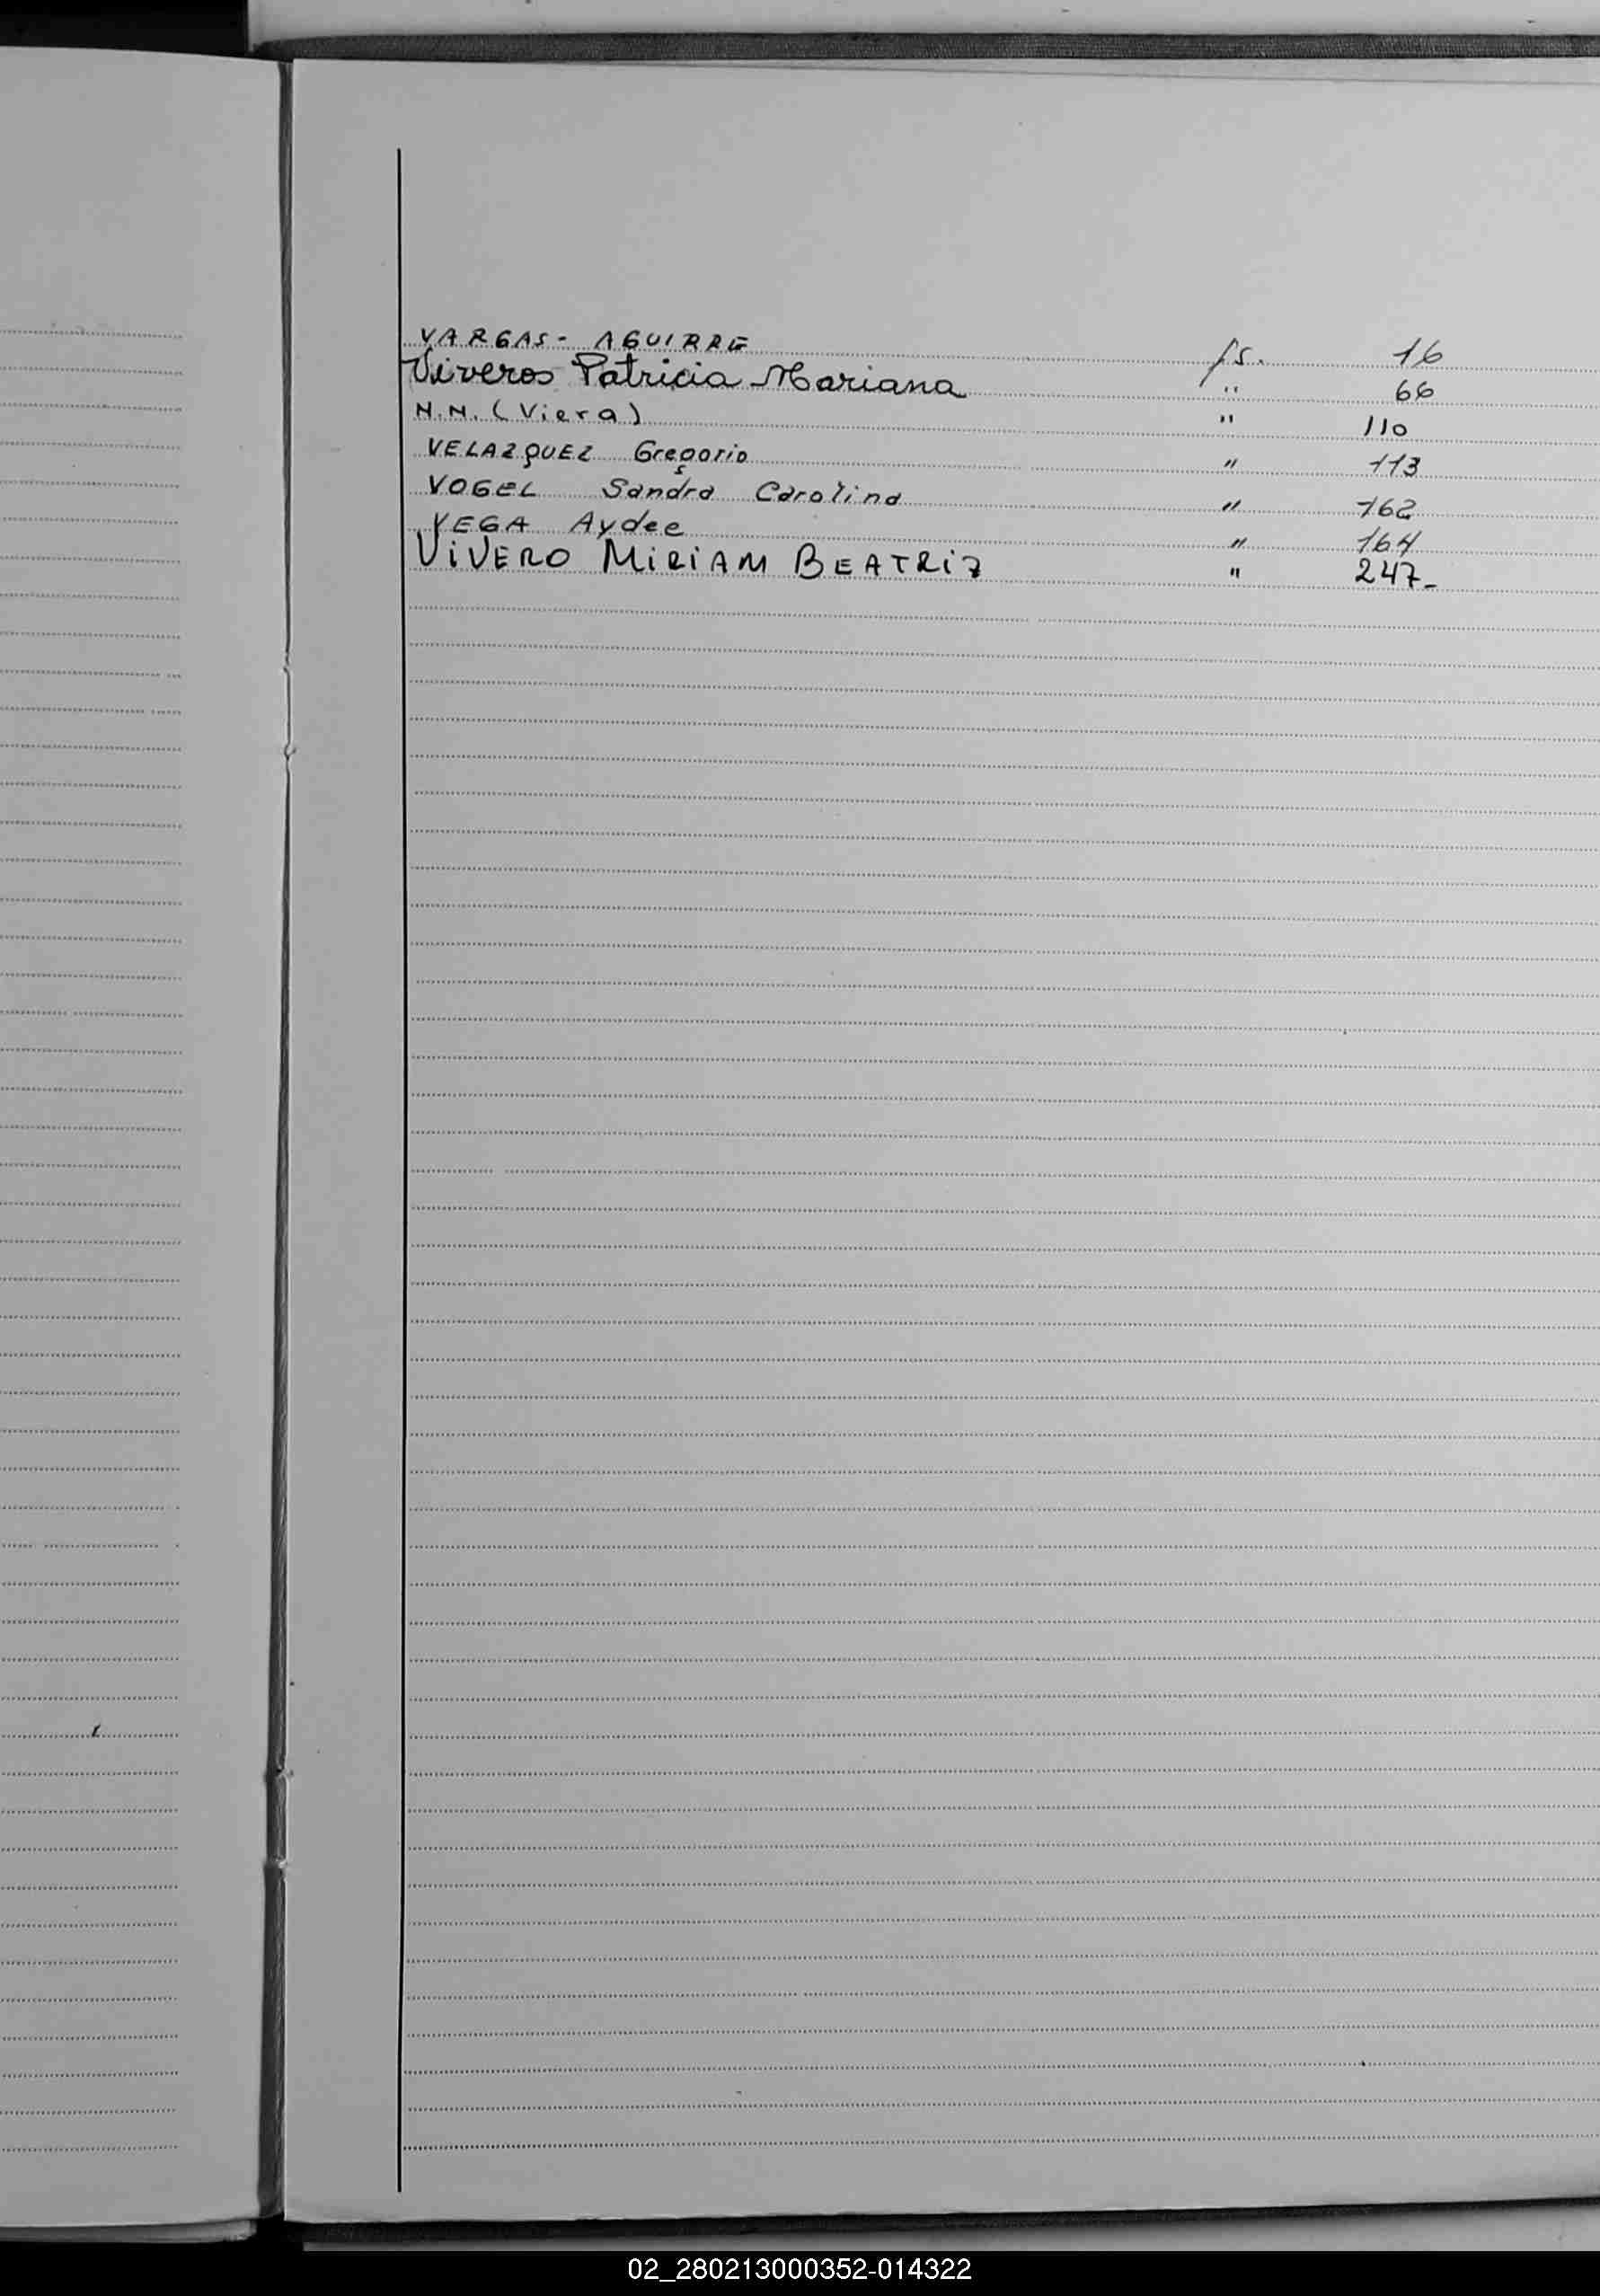 VARGAS - AGUIRRE fs. 16
Viveros Patricia Mariana " 66
N.N. (Viera) " 110
VELAZQUEZ Gregorio " 113
VOGEL Sandra Carolina " 162
VEGA Aydee " 164
ViVERO MiRiAM BEATRiZ " 247-
02_280213000352-014322